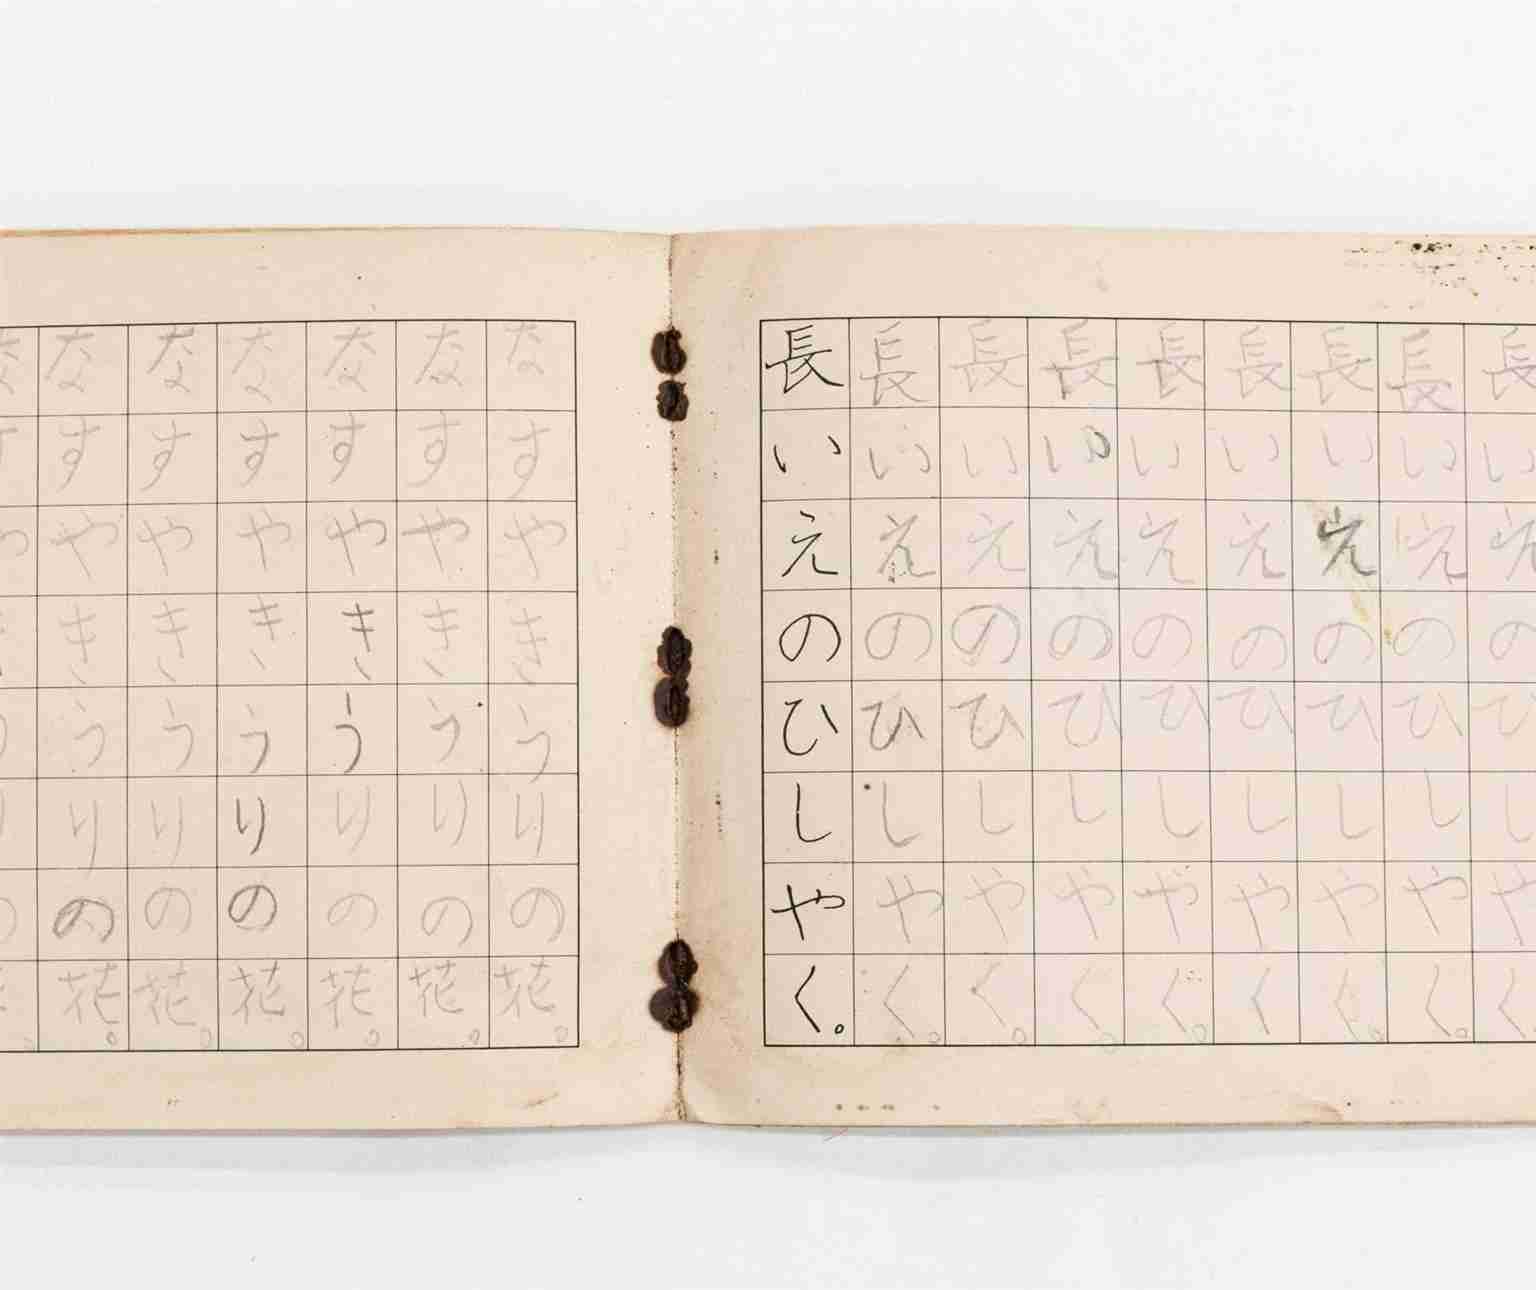 長いえのひしやく
長いえのひしやく。
長いえのひしやく。
長いえのひしやく。
長いえのひしやく。
長いえのひしやく。
長いえのひしやく。
長いえのひしやく。
長いえのひしやく。
なすやきうりの花。
なすやきうりの花。
なすやきうりの花。
なすやきうりの花。
なすやきうりの花。
なすやきうりの花。